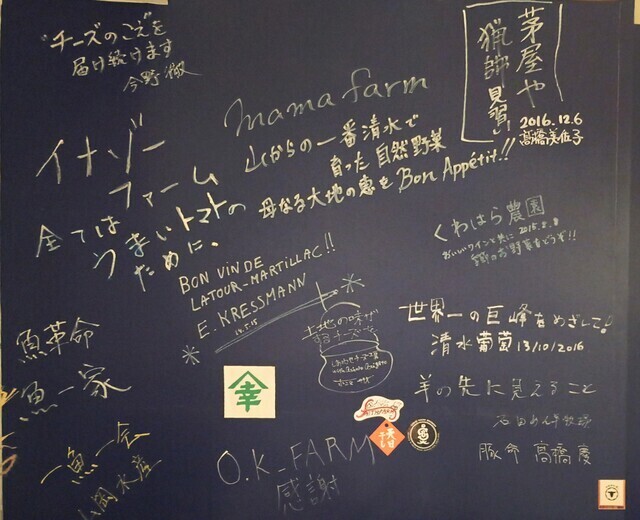 "チーズのこえ"を
届け続けます
今野 徹
mama farm
山からの一番清水で
育った自然野菜
母なる大地の恵を Bon Appétit!!
茅屋や
猟師見習い
2016.12.6
髙橋美佐子
イナゾー
ファーム
全ては
うまいトマトの
ために。
くわはら農園
おいしいワインと共に 2015.8.8
BON VIN DE
LATOUR-MARTILLAC!!
E. KRESSMANN
14.5.15
土地の味が
するチーズで
世界一の巨峰をめざして!
清水葡萄 13/10/2016
羊の先に見えること
豚命 髙橋 慶
魚革命
魚一家
一魚一会
水産
幸
O.K_FARM
感謝